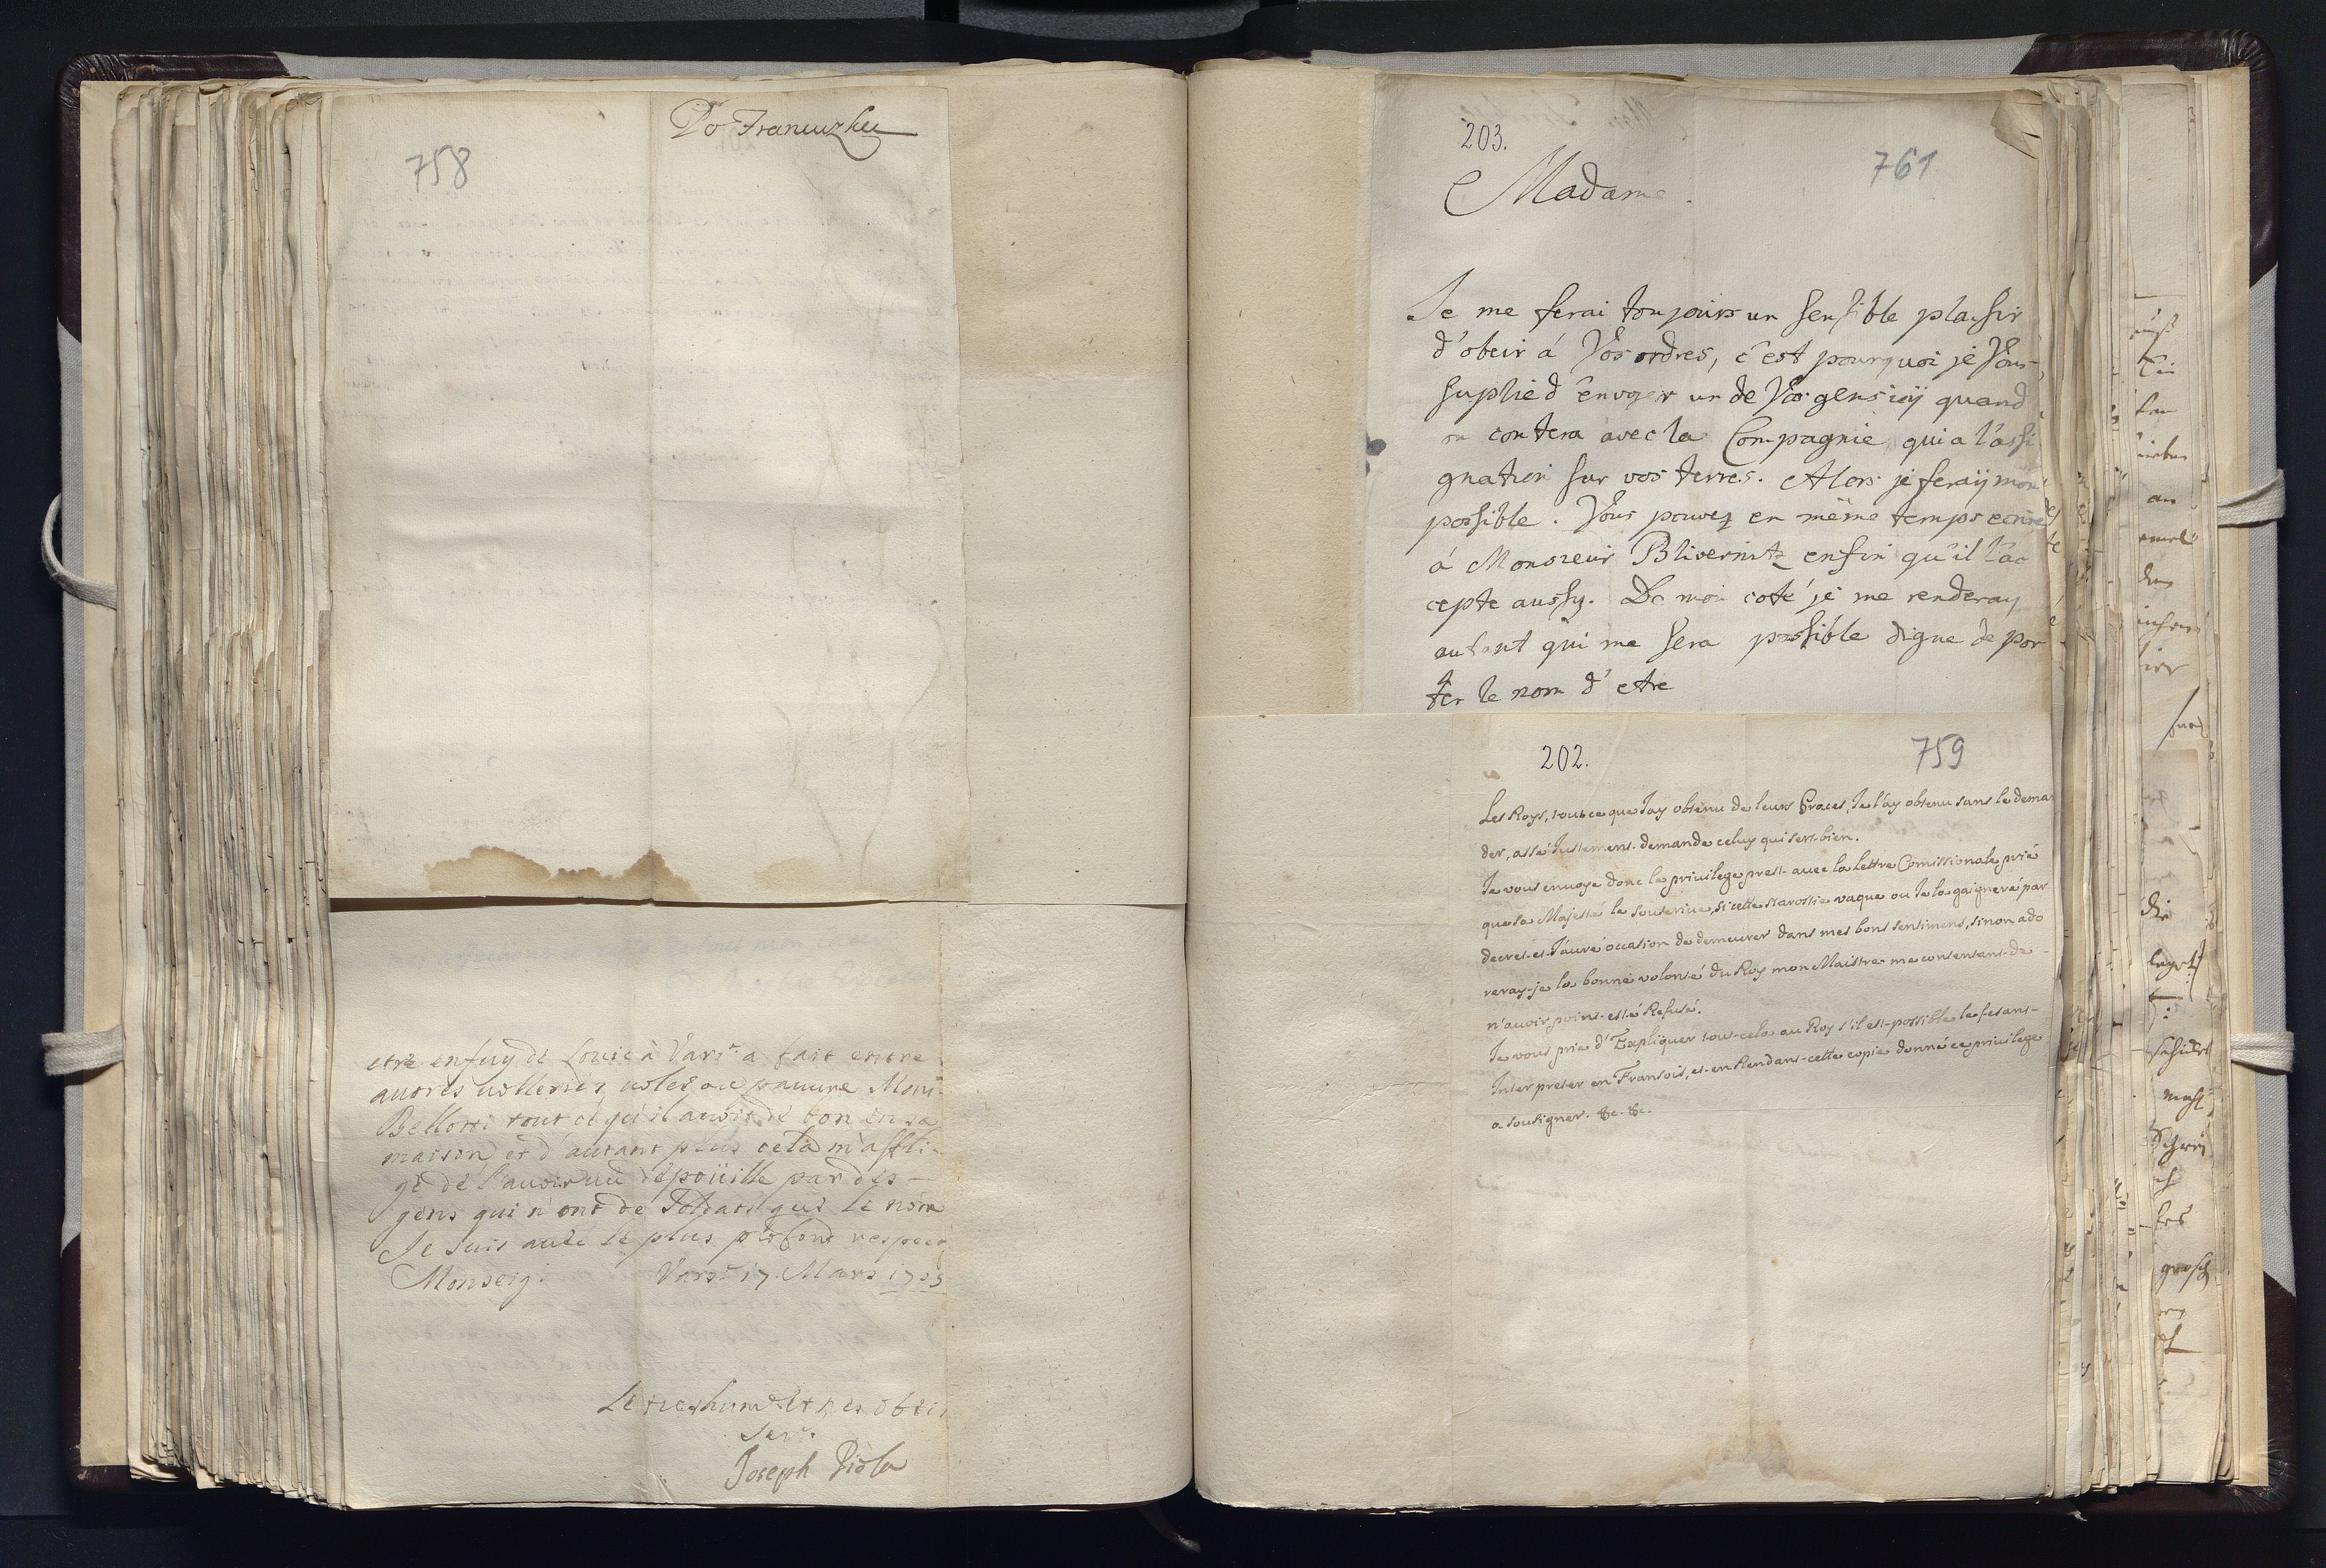 Po Francuzku
758
etre enfuy de Lovic à Vars.ᵉ a fait entre
autres volleries voler au pauvre Mons.
Bellotti tout ce qu'il avoit de bon en sa
maison et d'autant plus cela m'affli-
ge de l'avoir vu depoüille par des
gens qui n'ont de Soldats que le nom
Je suis avec le plus profond respect
Monseig. Vars.ᵉ 17. Mars 1705
Le tres hum.ᵉ et tres obeis
Ser.
Joseph Piola
203.
761
Madame.
Je me ferai toujours un sensible plaisir
d'obeir á Vos ordres, c'est pourquoi je Vous
suplie d'envoyer un de Vos gens icÿ quand
on contera avec la Compagnie qui a l'assi
gnation sur vos terres. Alors je feraÿ mon
possible. Vous pouvez en même temps ecrire
á Monsieur Blivernitz enfin qu'il l'ac
cepte aussy. De mon coté je me renderay
autant qui me sera possible digne de por
ter le nom d'etre
202.
759
Les Roys, tout ce que Jay obtenu de leurs Graces, Je l'ay obtenu sans le deman
der, assé Justement demande celuy qui sert bien.
Je vous envoye donc le privilege prest avec la lettre Comissionale prié
que sa Majesté le souscrive, si cette starostie vaque ou Je la gaigneré par
decret et J'auré occasion de demeurer dans mes bons sentimens, sinon ado
reray-je la bonne volonté du Roy mon Maistre me contentant de
n'avoir point esté Refusé.
Je vous prie d'Expliquer tout cela au Roy s'il est possible le fesant
Interpreter en Fransois, et en Rendant cette copie donné ce privilege
a sousigner. &c. &c.